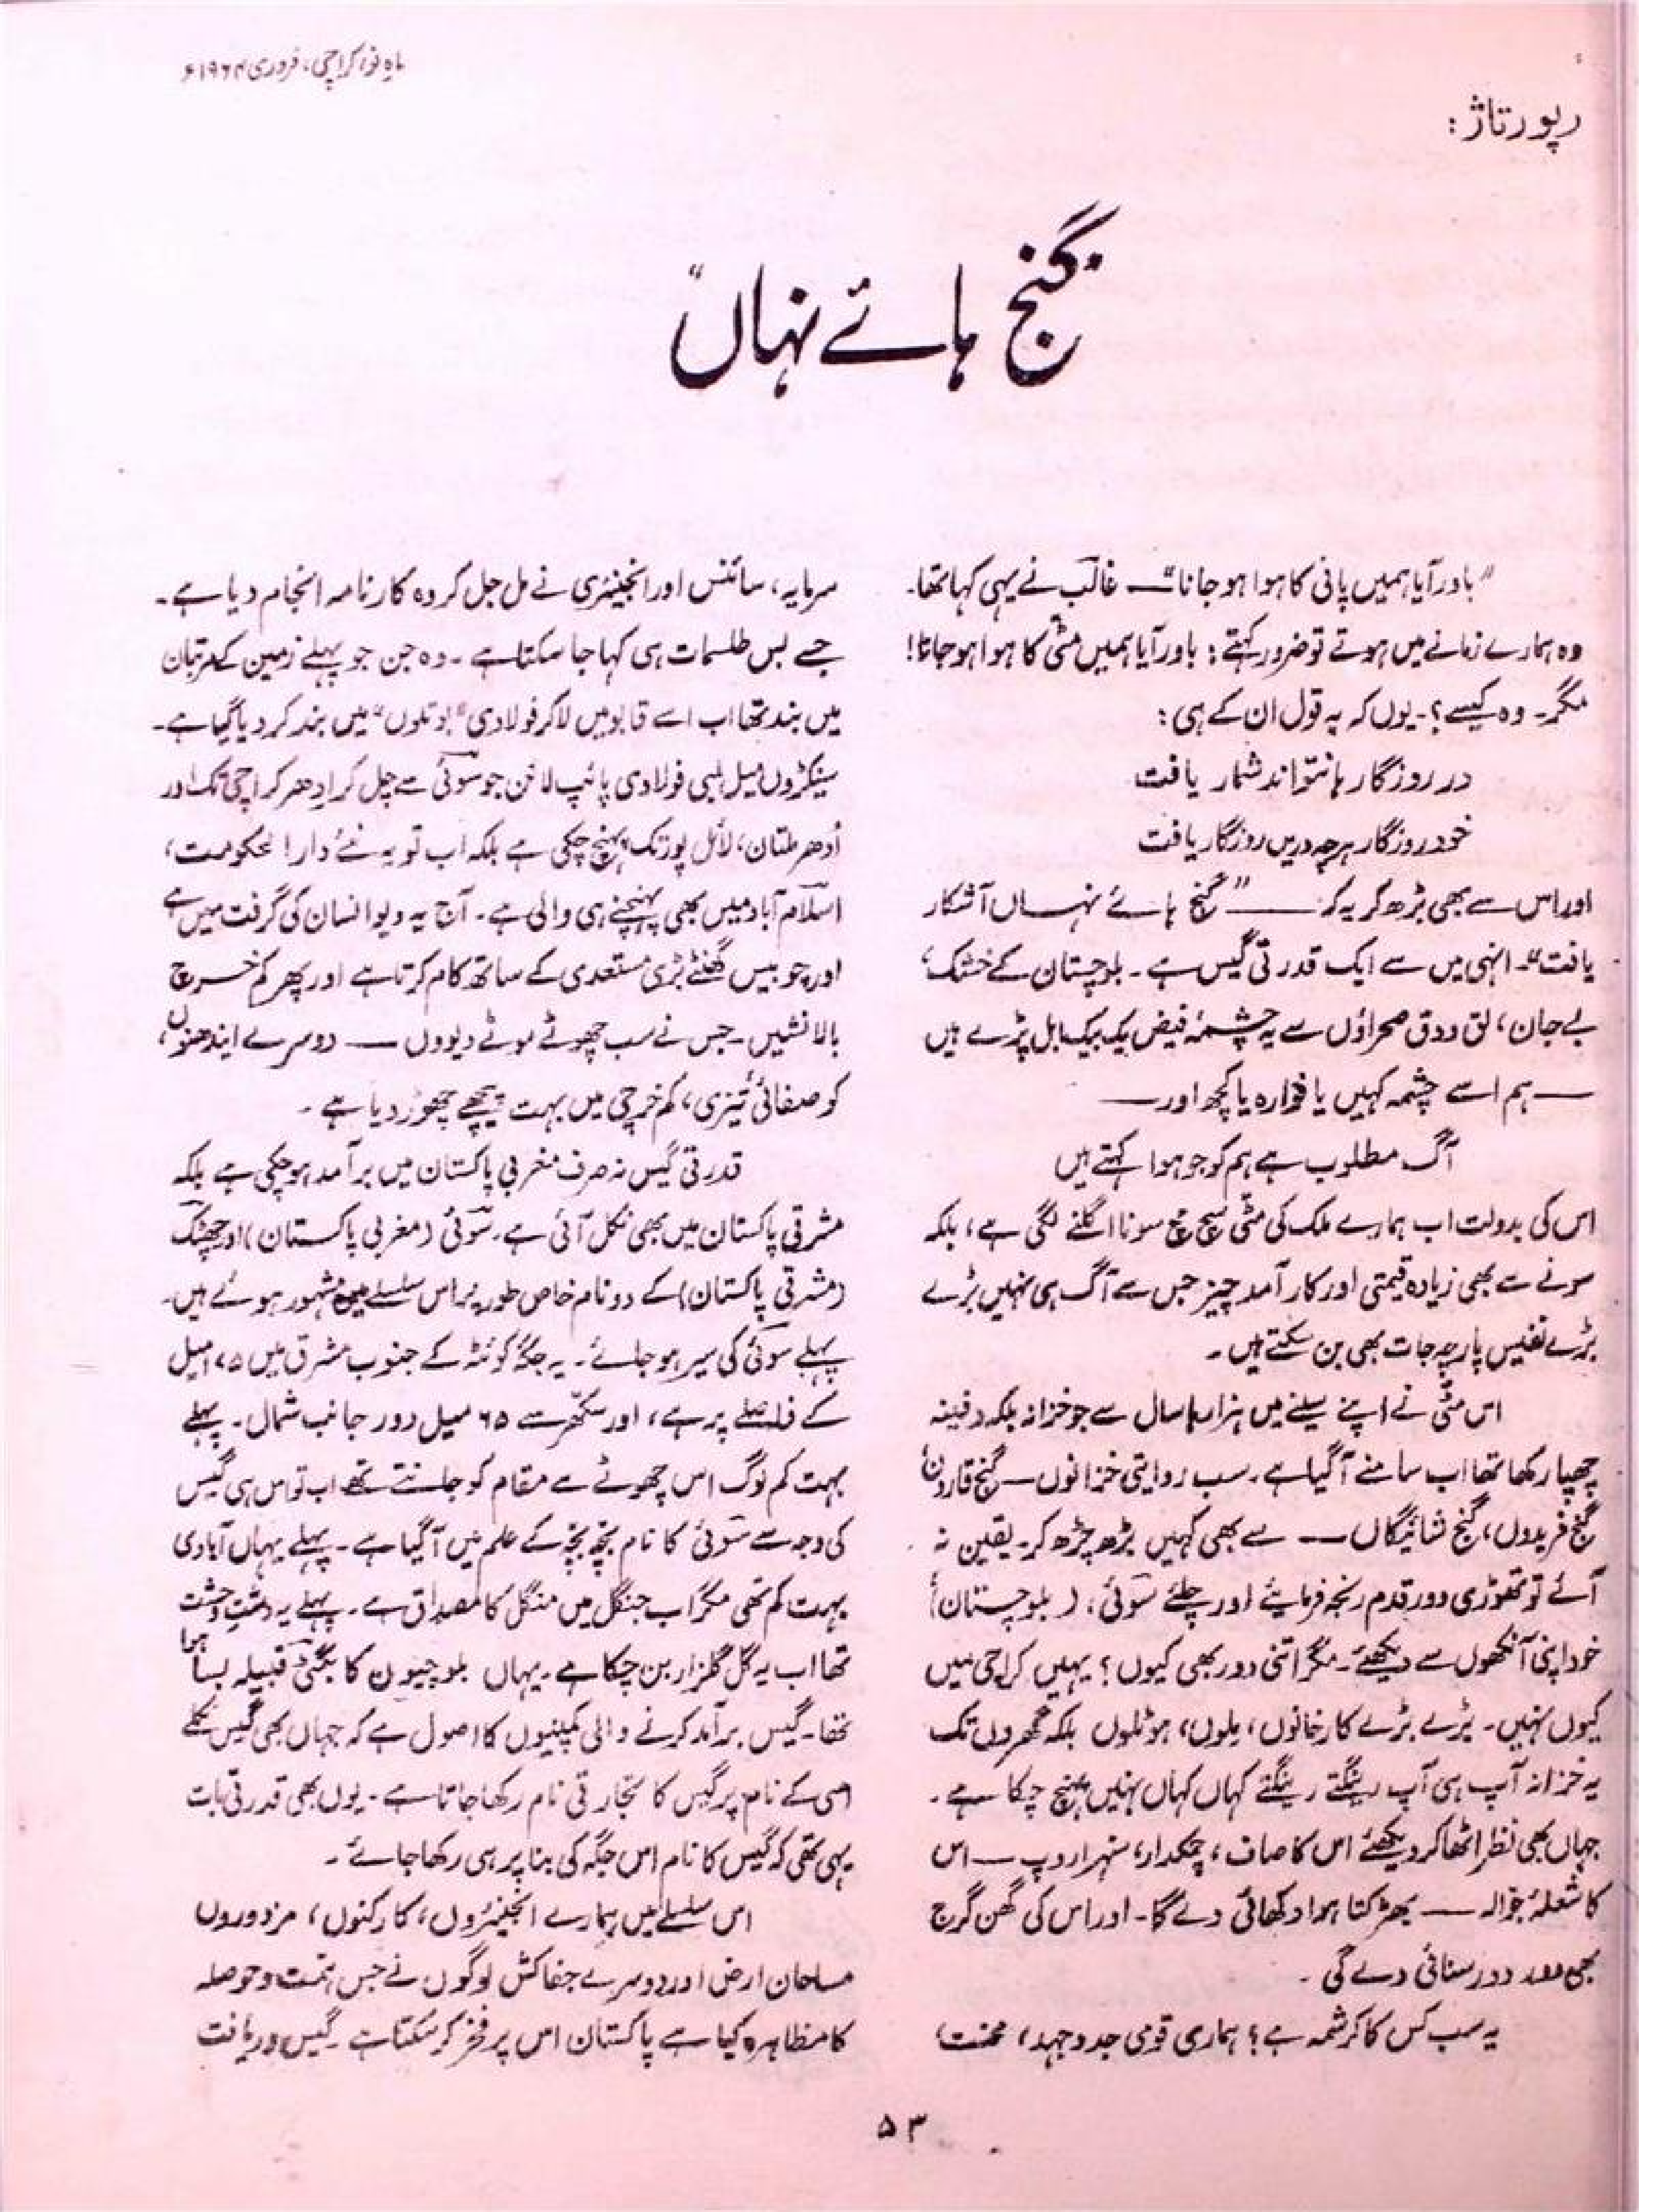 ماہِ نو، کراچی، فروری ۱۹۶۴ء
رپورتاژ:
"گنج ہائے نہاں"
"باور آیا ہمیں پانی کا ہوا ہو جانا" — غالب نے یہی کہا تھا۔
وہ ہمارے زمانے میں ہوتے تو ضرور کہتے: باور آیا ہمیں مٹی کا ہوا ہو جانا!
مگر۔ وہ کیسے؟۔ یوں کہ بہ قول ان کے ہی:
در روزگار ہا نتواند شمار یافت
خود روزگار ہرچہ دریں روزگار یافت
اور اس سے بھی بڑھ کر یہ کہ — "گنج ہائے نہاں آشکار
یافت"۔ انہی میں سے ایک قدرتی گیس ہے۔ بلوچستان کے خشک،
بے جان، لق و دق صحراؤں سے یہ چشمۂ فیض یک بیک ابل پڑے ہیں
— ہم اسے چشمہ کہیں یا فوارہ یا کچھ اور —
آگ مطلوب ہے ہم کو جو ہوا کہتے ہیں
اس کی بدولت اب ہمارے ملک کی مٹی سچ مچ سونا اگلنے لگی ہے، بلکہ
سونے سے بھی زیادہ قیمتی اور کار آمد چیز جس سے آگ ہی نہیں بڑے
بڑے نفیس پارچہ جات بھی بن سکتے ہیں۔
اس مٹی نے اپنے سینے میں ہزارہا سال سے جو خزانہ بلکہ دفینہ
چھپا رکھا تھا اب سامنے آگیا ہے۔ سب روایتی خزانوں — گنج قارون،
گنج فریدوں، گنج شائیگاں — سے بھی کہیں بڑھ چڑھ کر۔ یقین نہ
آئے تو تھوڑی دور قدم رنجہ فرمایئے اور چلئے سوئی، (بلوچستان)،
خود اپنی آنکھوں سے دیکھئے۔ مگر اتنی دور بھی کیوں؟ یہیں کراچی میں
کیوں نہیں۔ بڑے بڑے کارخانوں، ملوں، ہوٹلوں بلکہ گھروں تک
یہ خزانہ آپ ہی آپ رینگتے رینگتے کہاں کہاں نہیں پہنچ چکا ہے۔
جہاں بھی نظر اٹھا کر دیکھئے اس کا صاف، چمکدار، سنہرا روپ — اس
کا شعلۂ جوالہ — بھڑکتا ہوا دکھائی دے گا۔ اور اس کی گھن گرج
بھی دور دور سنائی دے گی۔
یہ سب کس کا کرشمہ ہے؟ ہماری قومی جد و جہد، محنت،
سرمایہ، سائنس اور انجینئری نے مل جل کر وہ کارنامہ انجام دیا ہے۔
جسے بس طلسمات ہی کہا جا سکتا ہے۔ وہ جن جو پہلے زمین کے مرتبان
میں بند تھا اب اسے قابو میں لا کر فولادی "بوتلوں" میں بند کر دیا گیا ہے۔
سینکڑوں میل لمبی فولادی پائپ لائن جو سوئی سے چل کر ادھر کراچی تک اور
اُدھر ملتان، لائل پور تک پہنچ چکی ہے بلکہ اب تو یہ نئے دارالحکومت،
اسلام آباد میں بھی پہنچنے ہی والی ہے۔ آج یہ دیو انسان کی گرفت میں ہے
اور چوبیس گھنٹے بڑی مستعدی کے ساتھ کام کرتا ہے اور پھر کم خرچ
بالا نشیں۔ جس نے سب چھوٹے موٹے دیووں — دوسرے ایندھنوں،
کو صفائی، تیزی، کم خرچی میں بہت پیچھے چھوڑ دیا ہے۔
قدرتی گیس نہ صرف مغربی پاکستان میں برآمد ہو چکی ہے بلکہ
مشرقی پاکستان میں بھی نکل آئی ہے۔ سوئی (مغربی پاکستان) اور چھٹک
(مشرقی پاکستان) کے دو نام خاص طور پر اس سلسلے میں مشہور ہوئے ہیں۔
پہلے سوئی کی سیر ہو جائے۔ یہ جگہ کوئٹہ کے جنوب مشرق میں ۱۷۵ میل
کے فاصلے پر ہے، اور سکھر سے ۶۵ میل دور جانب شمال۔ پہلے
بہت کم لوگ اس چھوٹے سے مقام کو جانتے تھے اب تو اس ہی گیس
کی وجہ سے سوئی کا نام بچے بچے کے علم میں آگیا ہے۔ پہلے یہاں آبادی
بہت کم تھی مگر اب جنگل میں منگل کا مصداق ہے۔ پہلے یہ دشتِ وحشت
تھا اب یہ گل گلزار بن چکا ہے۔ یہاں بلوچیوں کا بگٹی قبیلہ بسا ہوا
تھا۔ گیس برآمد کرنے والی کمپنیوں کا اصول ہے کہ جہاں بھی گیس نکلے
اسی کے نام پر گیس کا تجارتی نام رکھا جاتا ہے۔ یوں بھی قدرتی بات
یہی تھی کہ گیس کا نام اس جگہ کی بنا پر ہی رکھا جائے۔
اس سلسلے میں ہمارے انجینئروں، کارکنوں، مزدوروں
مساحان ارض اور دوسرے جفاکش لوگوں نے جس ہمت و حوصلہ
کا مظاہرہ کیا ہے پاکستان اس پر فخر کر سکتا ہے۔ گیس دریافت
۵۳